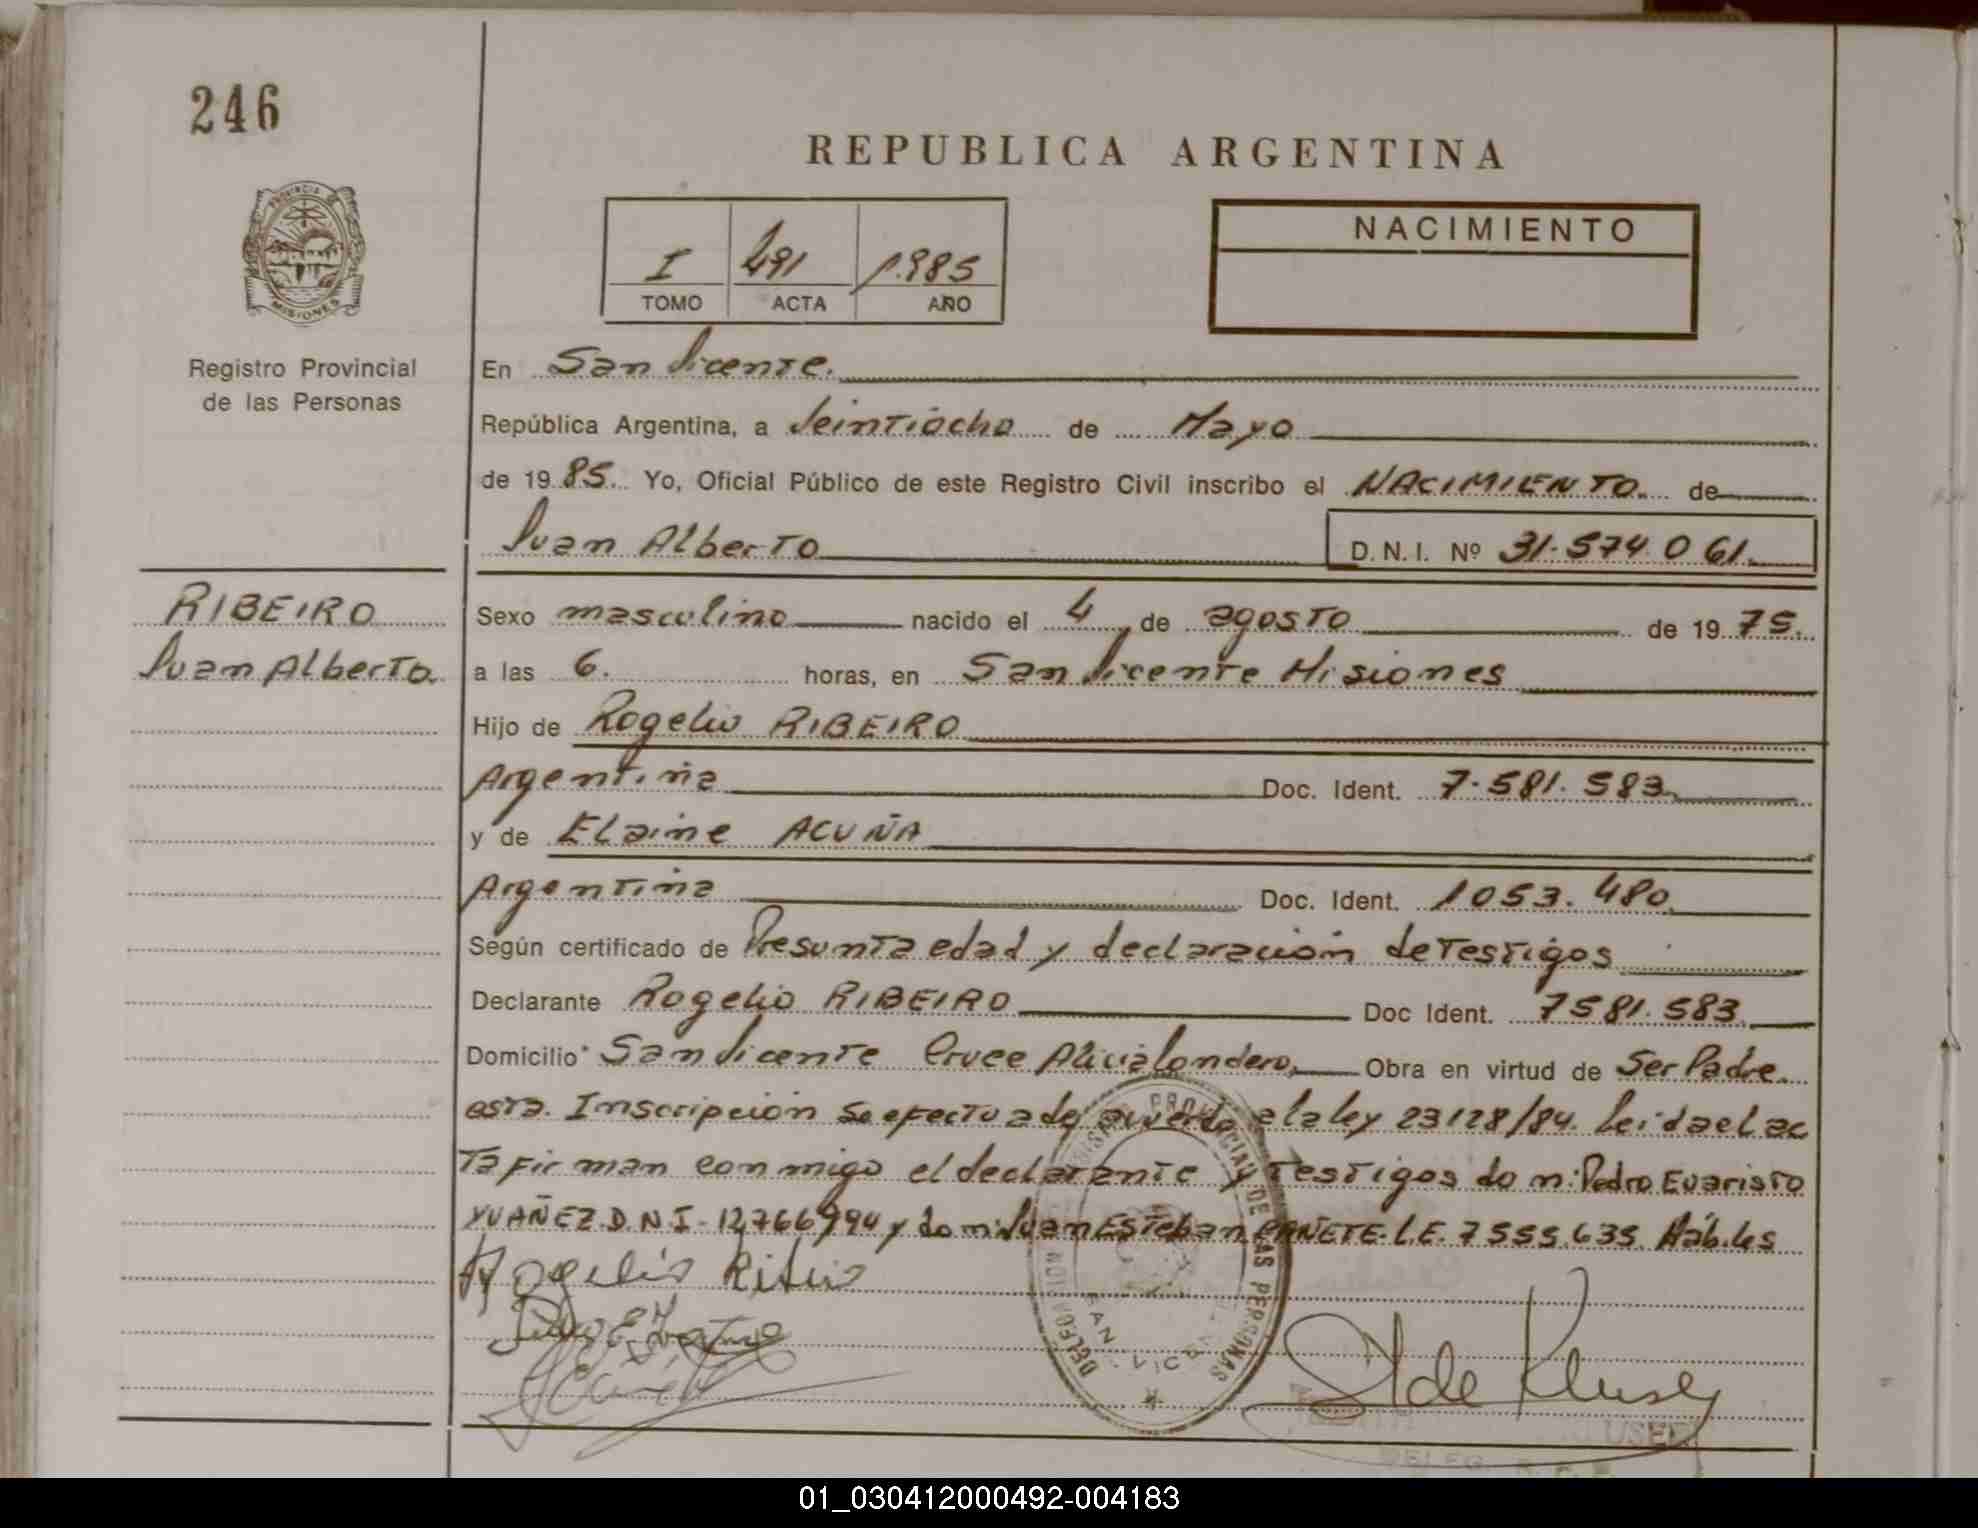 246
REPUBLICA ARGENTINA
PROVINCIA DE MISIONES
I 491 1.985
TOMO ACTA AÑO
NACIMIENTO
Registro Provincial
de las Personas
En San Vicente.
República Argentina, a Veintiocho de Mayo
de 19 85. Yo, Oficial Público de este Registro Civil inscribo el NACIMIENTO. de
Juan Alberto D.N.I. Nº 31.574.061.
RIBEIRO
Juan Alberto
Sexo masculino nacido el 4 de agosto de 19 75.
a las 6. horas, en San Vicente Misiones
Hijo de Rogelio RIBEIRO
Argentina Doc. Ident. 7.581.583
y de Elaine ACUÑA
Argentina Doc. Ident. 1053.480
Según certificado de Presunta edad y declaración de Testigos
Declarante Rogelio RIBEIRO Doc Ident. 7581.583
Domicilio San Vicente Cruce Obra en virtud de Ser Padre
esta. Inscripción se efectua de acuerdo a la ley 23128/84. Leida el ac
ta firman conmigo el declarante y Testigos don: Pedro Evaristo
YUAÑEZ. D.N.I. 12,766994 y don: Juan Esteban CAÑETE. L.E. 7555.635 Hábiles
DELEGACION PROVINCIAL DE LAS PERSONAS
SAN VICENTE
01_030412000492-004183